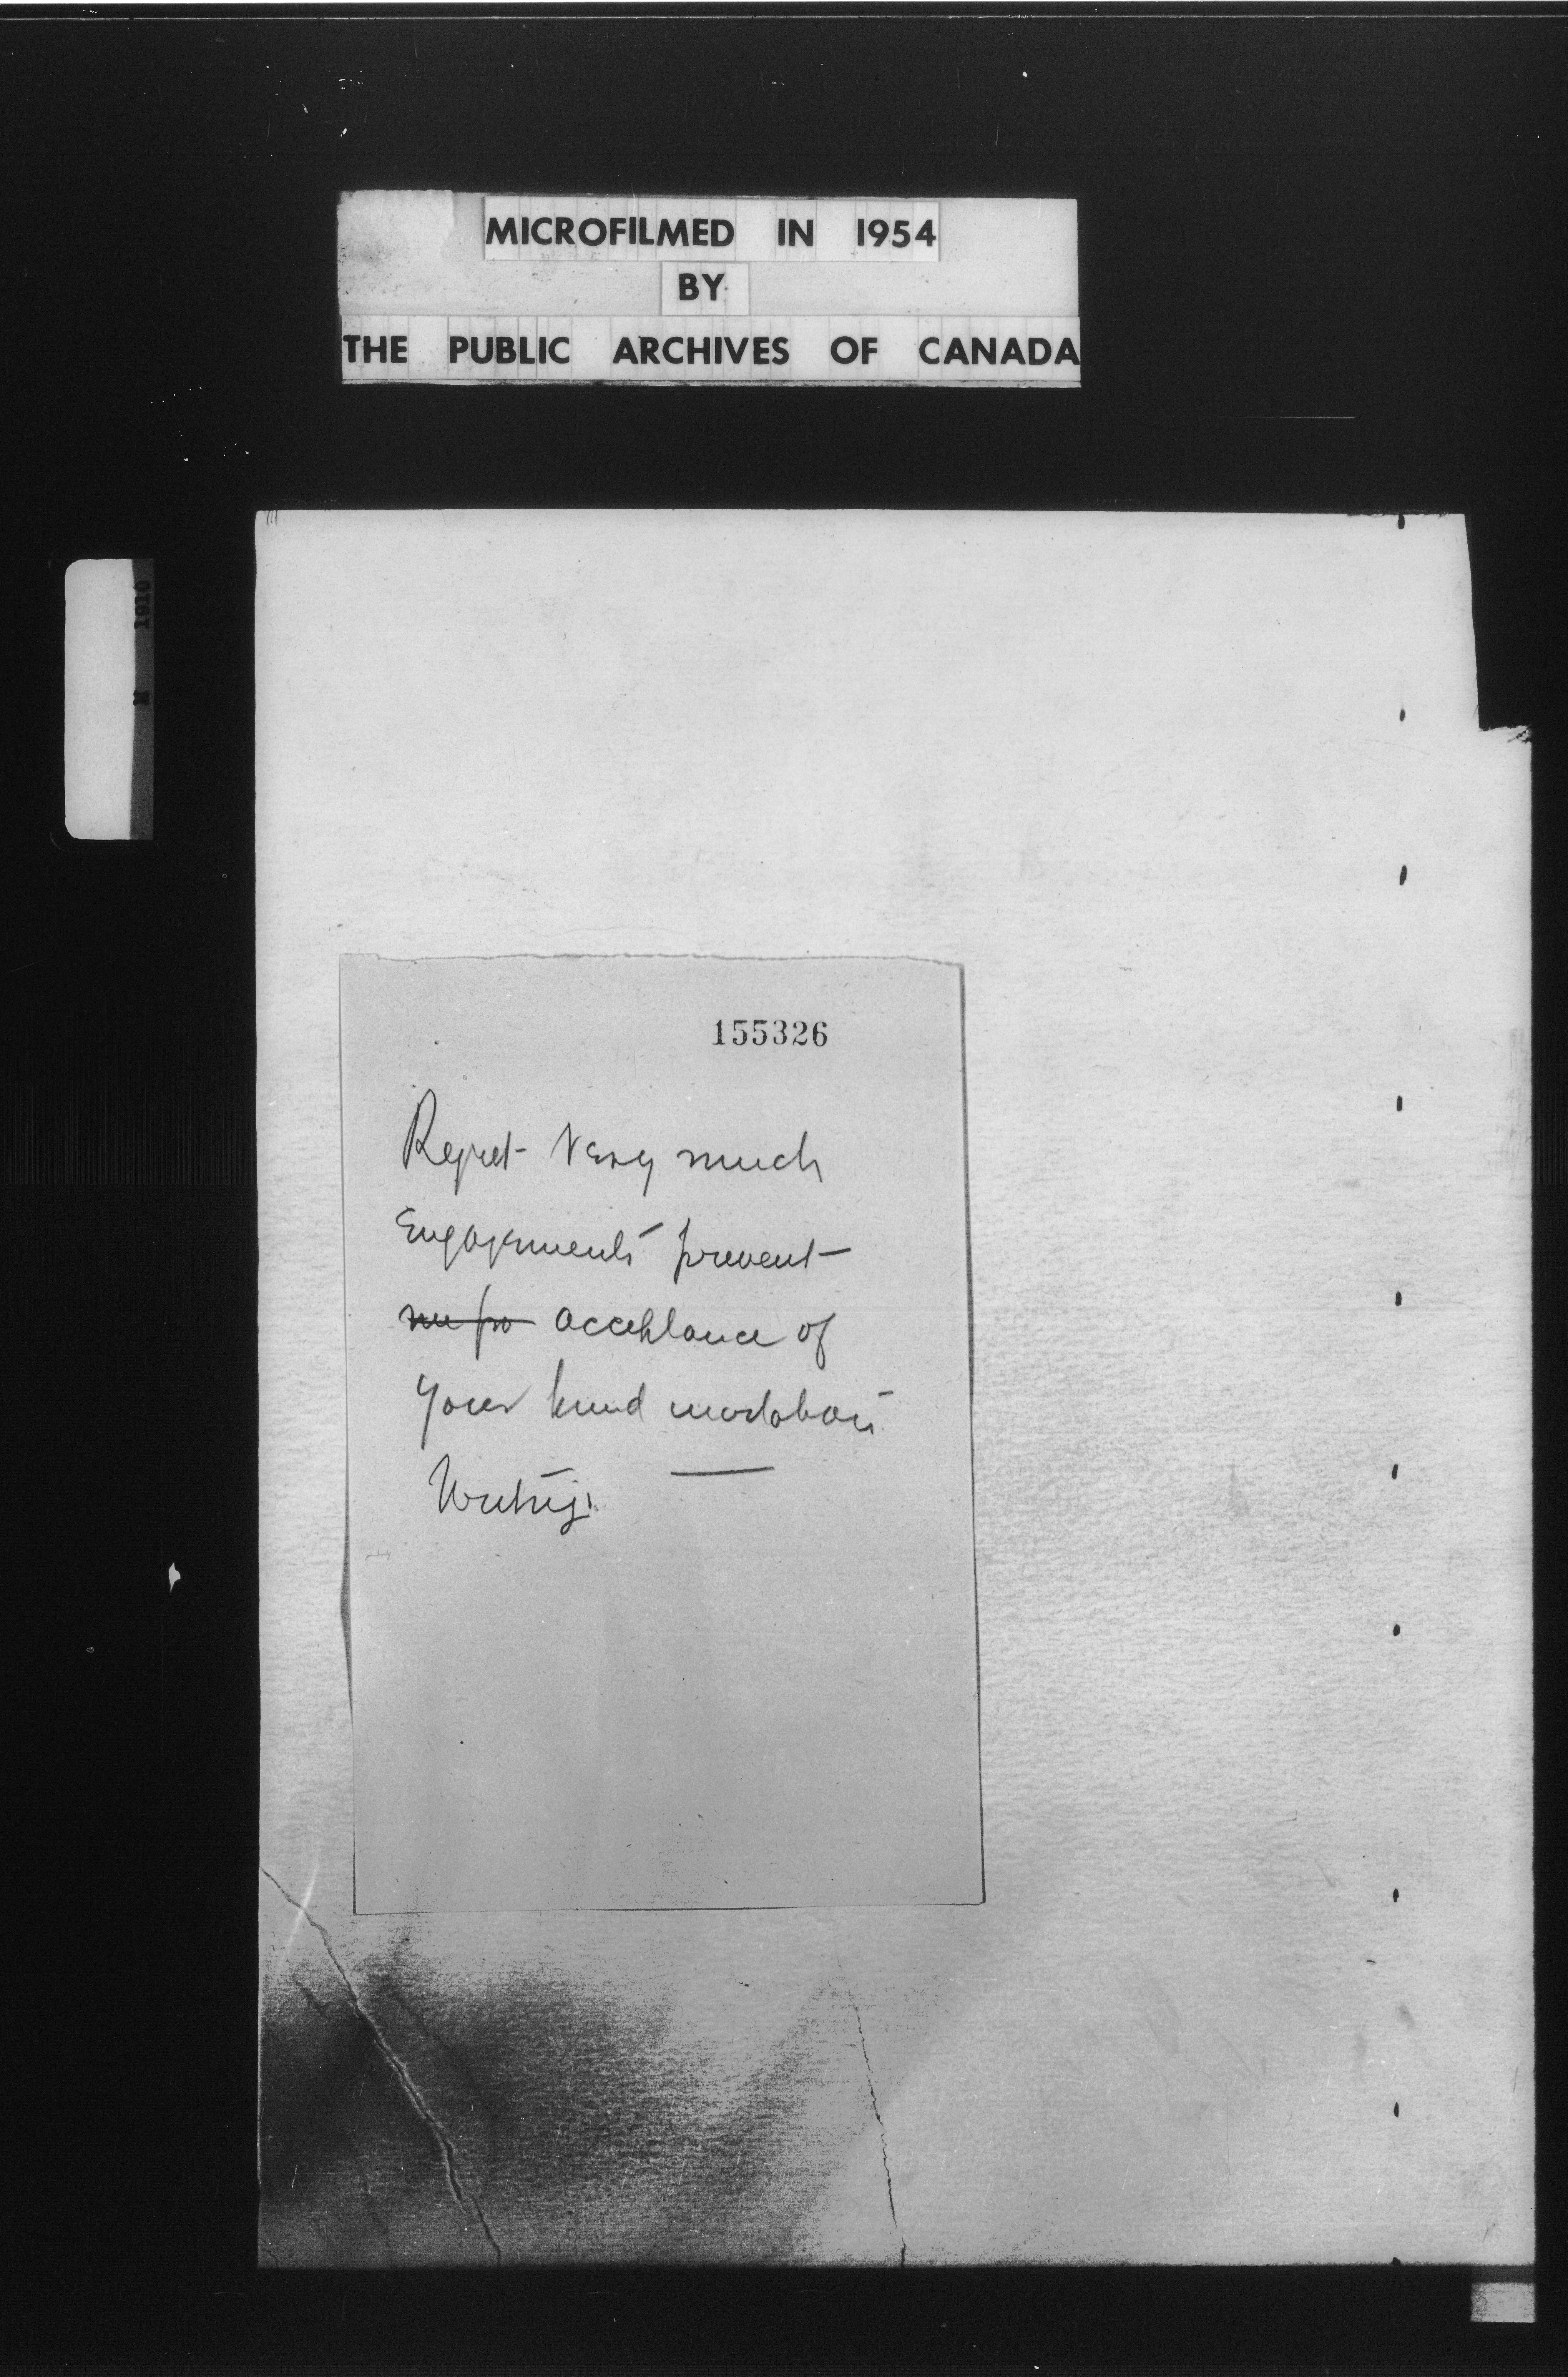 MICROFILMED IN 1954
BY
THE PUBLIC ARCHIVES OF CANADA
M 1910
155326
Regret very much
Engagements prevent
me fro acceptance of
your kind invitation
Writing.